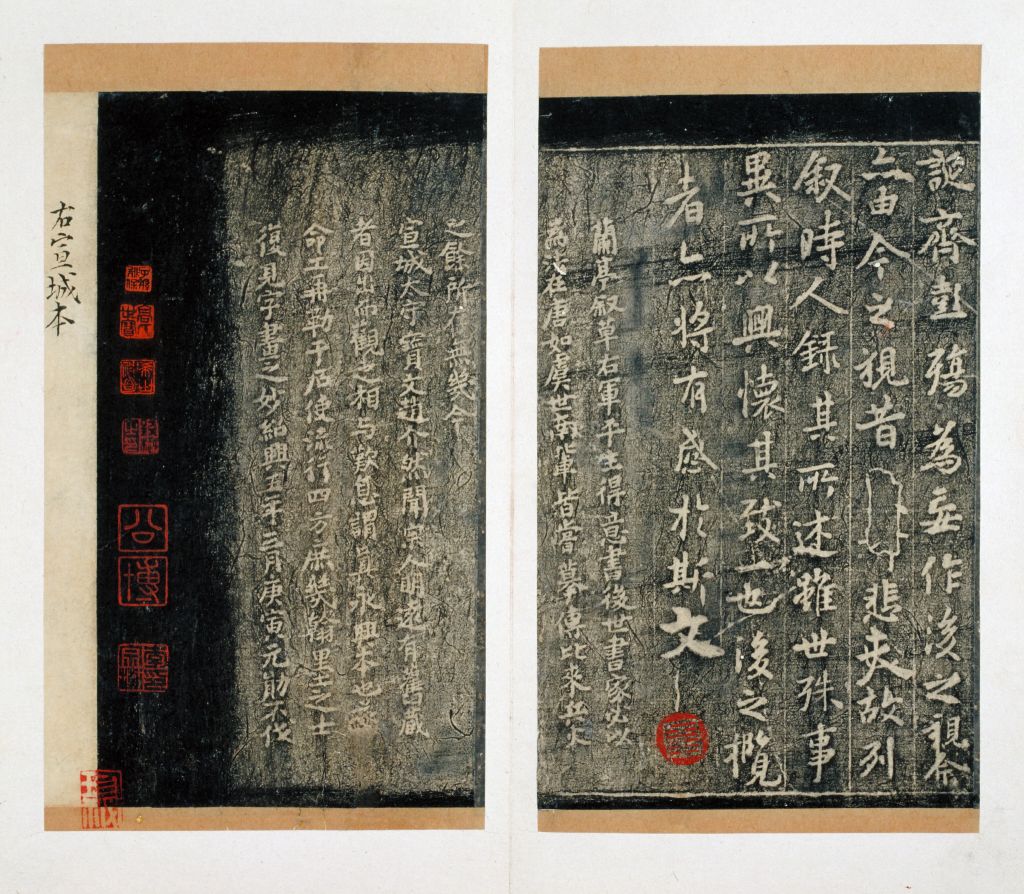 誕齊彭殤為妄作後之視今
亦由今之視昔悲夫故列
叙時人錄其所述雖世殊事
異所以興懷其致一也後之攬
者亦將有感於斯文
蘭亭叙草右軍平生得意書後世書家必以
為茂在唐如虞世南軰皆嘗摹傳比來兵火
之餘所存無幾今
宣城太守寶文趙公然聞宗人明遠有舊藏
者因出而觀之相与歎息謂真永興本也
命工摹勒于石使流行四方庶幾翰墨之士
復見字畫之妙紹興五年三月庚寅元勛不伐
公博
右宣城本